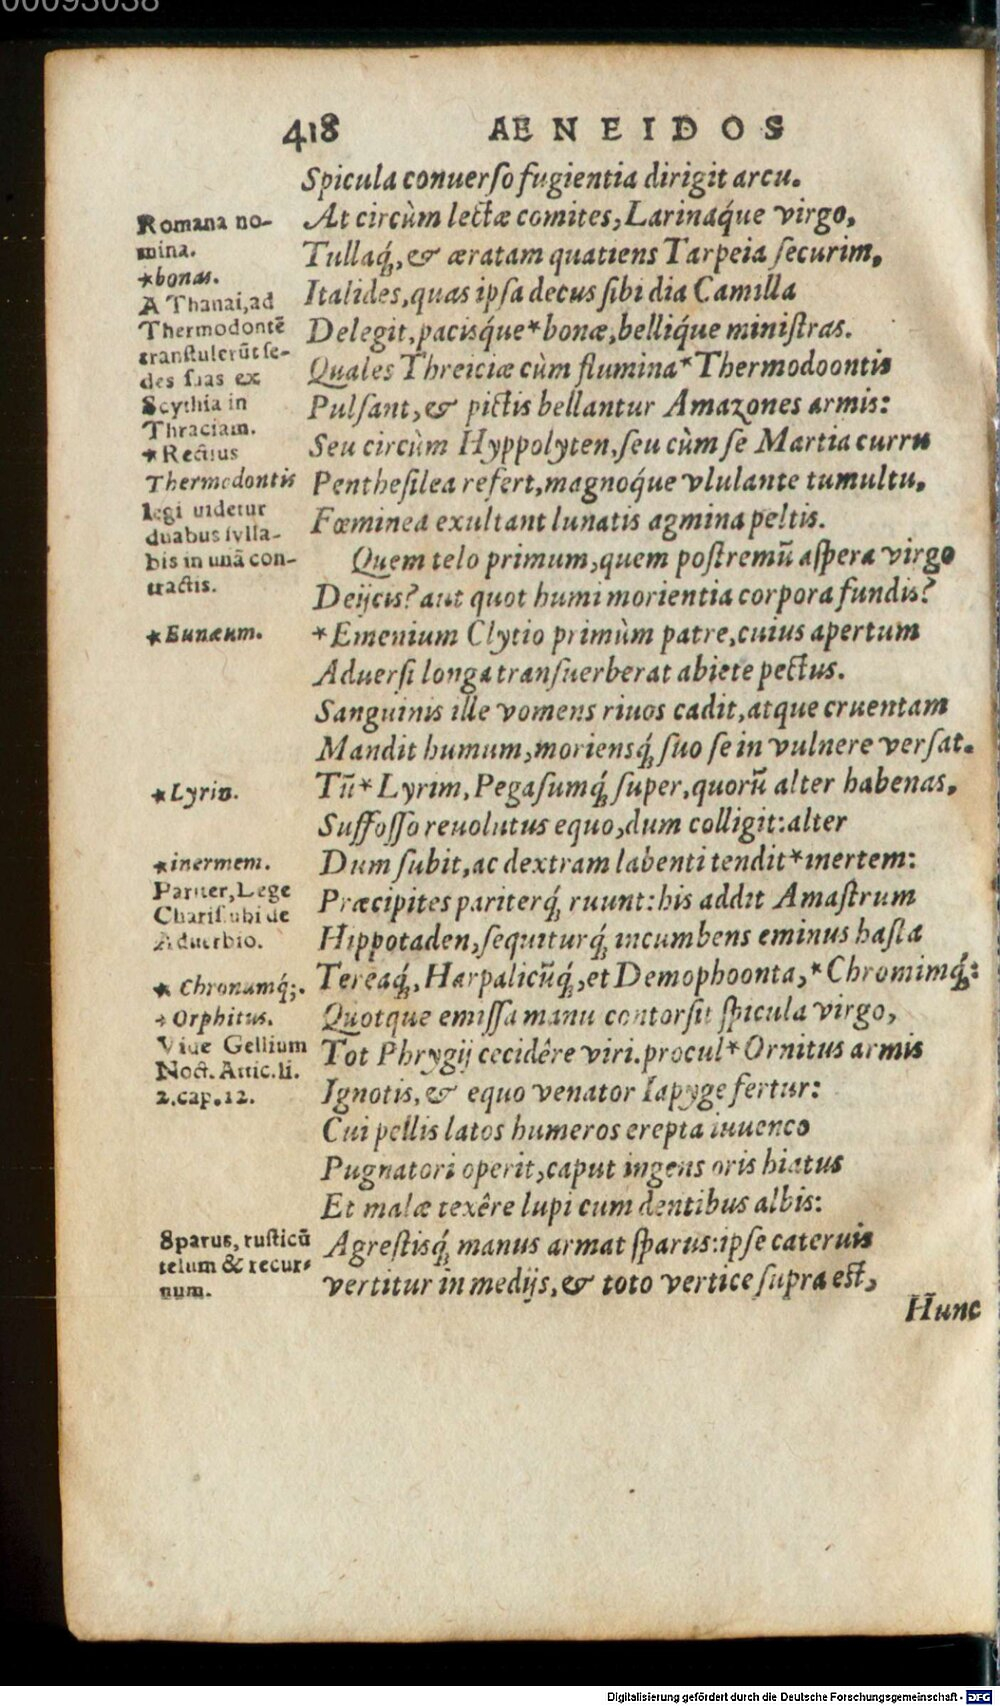 00093038
418 AENEIDOS
Spicula conuerſo fugientia dirigit arcu.
At circùm lectæ comites, Larinaq́ue virgo,
Tullaq́;, & æratam quatiens Tarpeia ſecurim,
Italides, quas ipſa decus ſibi dia Camilla
Delegit, pacisq́ue * bonæ, belliq́ue miniſtras.
Quales Threiciæ cùm flumina * Thermodoontis
Pulſant, & pictis bellantur Amazones armis:
Seu circùm Hyppolyten, ſeu cùm ſe Martia curru
Pentheſilea refert, magnoq́ue vlulante tumultu,
Fœminea exultant lunatis agmina peltis.
Quem telo primum, quem poſtremũ aſpera virgo
Deijcis? aut quot humi morientia corpora fundis?
* Emenium Clytio primùm patre, cuius apertum
Aduerſi longa tranſuerberat abiete pectus.
Sanguinis ille vomens riuos cadit, atque cruentam
Mandit humum, moriensq́; ſuo ſe in vulnere verſat.
Tũ * Lyrim, Pegaſumq́; ſuper, quorũ alter habenas,
Suffoſſo reuolutus equo, dum colligit: alter
Dum ſubit, ac dextram labenti tendit * inertem:
Præcipites pariterq́; ruunt: his addit Amaſtrum
Hippotaden, ſequiturq́; incumbens eminus haſta
Tereaq́;, Harpalicũq́;, et Demophoonta, * Chromimq́;:
Quotque emiſſa manu contorſit ſpicula virgo,
Tot Phrygij cecidêre viri. procul * Ornitus armis
Ignotis, & equo venator Iapyge fertur:
Cui pellis latos humeros erepta iuuenco
Pugnatori operit, caput ingens oris hiatus
Et malæ texêre lupi cum dentibus albis:
Agreſtisq́; manus armat ſparus: ipſe cateruis
vertitur in medijs, & toto vertice ſupra eſt,
Hunc
Romana no-
mina.
* bonas.
A Thanai, ad
Thermodontẽ
tranſtulerũt ſe-
des ſuas ex
Scythia in
Thraciam.
* Rectius
Thermodontis
legi uidetur
duabus ſylla-
bis in unã con-
tractis.
* Eunæum.
* Lyrin.
* inermem.
Pariter, Lege
Chariſ. ubi de
Aduerbio.
* Chronumq́;.
* Orphitus.
Vide Gellium
Noct. Attic. li.
2. cap. 12.
Sparus, ruſticũ
telum & recur-
num.
Digitalisierung gefördert durch die Deutsche Forschungsgemeinschaft - DFG